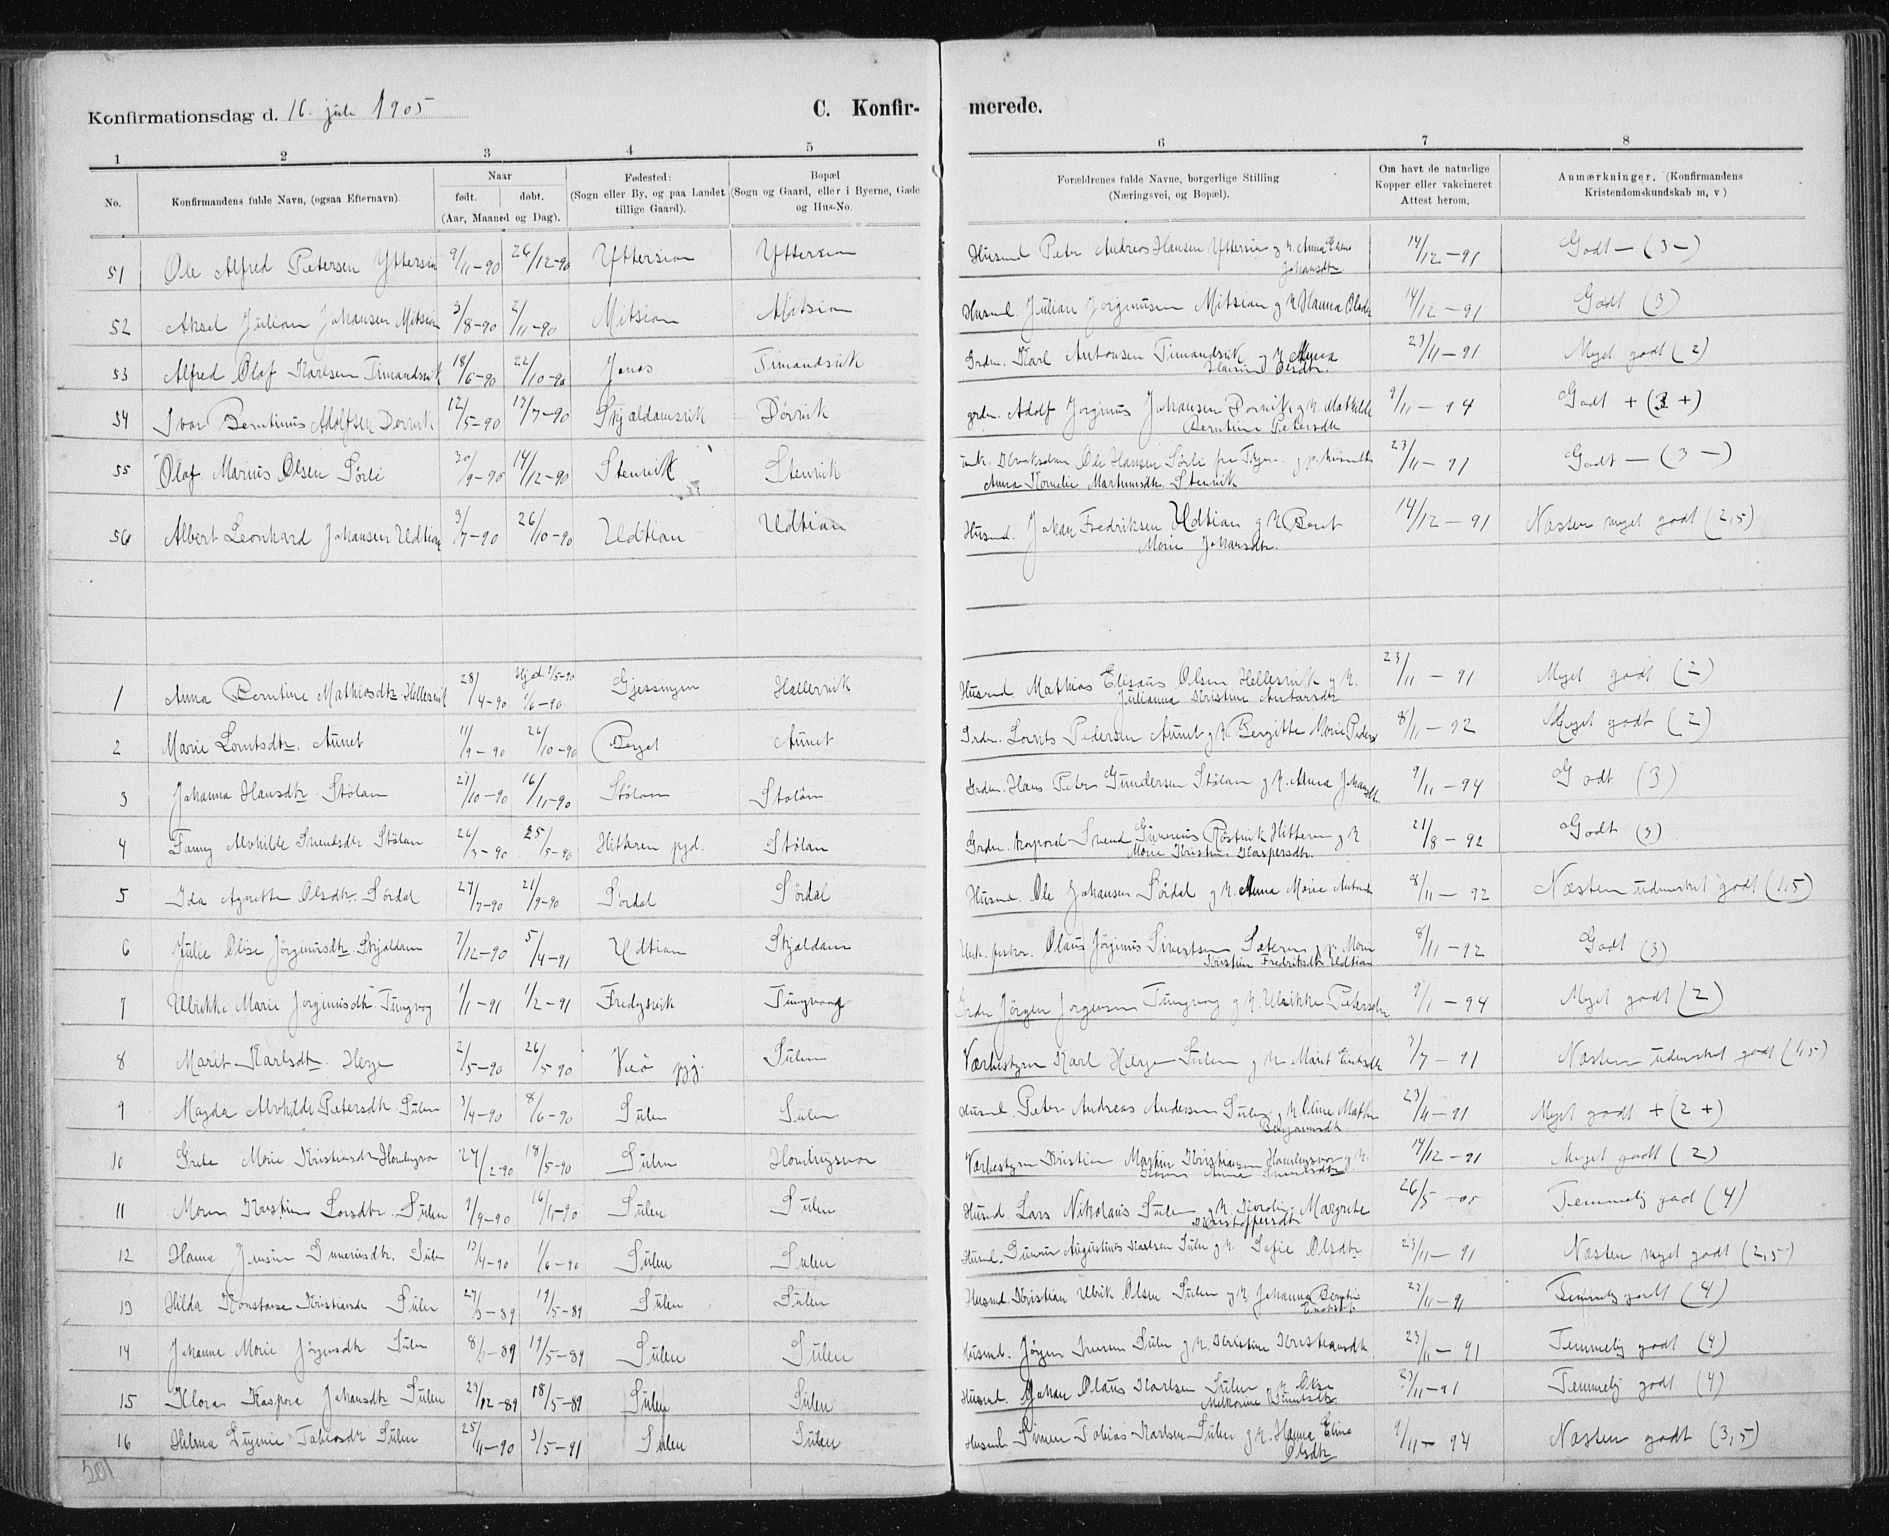 Konfirmationsdag d. 16. juli 1905
C. Konfir-
merede.
1 2 3 4 5 6 7 8
No.
Konfirmandens fulde Navn, (ogsaa Efternavn)
Naar
født. døbt.
(Aar, Maaned og Dag).
Fødested:
(Sogn eller By, og paa Landet
tillige Gaard).
Bopæl
(Sogn og Gaard, eller i Byerne, Gade
og Hus-No.
Forældrenes fulde Navne, borgerlige Stilling
(Næringsvei, og Bopæl).
Om havt de naturlige
Kopper eller vakcineret
Attest herom.
Anmærkninger. (Konfirmandens
Kristendomskundskab m, v)
51 Ole Alfred Petersen Yttersian 9/11-90 26/12-90 Yttersian Yttersian Husmd Peter Andreas Hansen Yttersian g. K. Anna
Johansdtr. 14/12-91 Godt - (3-)
52 Aksel Julian Johansen Mitsian 3/8-90 2/11-90 Mitsian Mitsian Husmd. Julian Jørginusen Mitsian g K Hanna Olsdtr 14/12-91 Godt (3)
53 Alfred Olaf Karlsen Timandsvik 18/6-90 22/10-90 Timandsvik Grdm. Karl Antonsen Timandsvik g K Anna
Olsdtr. 23/11-91 Meget godt (2)
54 Ivar Berntinus Adolfsen Dørvik 12/5-90 13/7-90 Skjældamsvik Dørvik grdm. Adolf Jørginus Johansen Dørvik g K. Mathilde
Berntine Petersdtr 9/11-94 Godt + (3+)
55 Olaf Marius Olsen Sørli 30/9-90 14/12-90 Stenvik Stenvik Ole Hansen Sørli fra
Anna Kornelie Martinusdtr. Stenvik 23/11-91 Godt - (3-)
56 Albert Leonhard Johansen Udtian 3/7-90 26/10-90 Udtian Udtian Husmd. Johan Fredriksen Udtian g K Beret
Marie Johansdtr. 14/12-91 Næsten meget godt (2,5)
1 Anna Berntine Mathiasdtr Hellesvik 28/4-90 Hjd. /5-90
1/6-90 Gjessingen Hellesvik Husmd Mathias Elisæus Olsen Hellesvik g K.
Julianna Kristine Antonsdtr 23/11-91 Meget godt (2)
2 Marie Lorntsdtr. Aunet 11/9-90 26/10-90 Berget Aunet Grdm. Lornts Pedersen Aunet g K Bergitte Marie Peders 8/11-92 Meget godt (2)
3 Johanna Hansdtr Stølan 16/11-90 Stølan Stølan Grdm. Hans Peter Gundersen Stølan g K. Anna Johansdtr. 9/11-94 Godt (3)
4 Fanny Alvhilde Svendsdtr Stølan 26/3-90 25/5-90 Hitteren pgd. Stølan Grdm. korporal Svend Hitteren g K
Marie Kristine Kaspersdtr. 21/8-92 Godt (3)
5 Ida Agnette Olsdtr. Sørdal 27/7-90 21/9-90 Sørdal Sørdal Husmd. Ole Johansen Sørdal g K. Anna Marie 8/11-92 Næsten udmerket godt (1,5)
6 Julie Olise Jørginusdtr Skjældam 7/12-90 5/4-91 Udtian Skjældam Olaus Jørginus Sivertsen Marie
Kristine Fredriksdtr Udtian 8/11-92 Godt (3)
7 Ulrikke Marie Jørginusdtr Tungvåg 1/1-91 1/2-91 Fredgsvik Tungvaag Grdm Jørgen Jørgensen Tungvag g K. Ulrikke Petersdtr 9/1-94 Meget godt (2)
8 Marit Karlsdtr. Herge 2/5-90 26/5-90 Veiø pgj. Sulen Værbestyrer Karl Herge Sulen g K Marit 7-91 Næsten udmerket godt (1,5)
9 Magda Alvhilde Petersdtr Sulen 3/4-90 8/6-90 Sulen Sulen Husmd. Peter Andreas Andersen Sulen g K Oline Mathea
Benjaminsdtr. 23/11-91 Meget godt + (2+)
10 Grete Marie Kristiansdtr 27/2-90 18/5-90 Sulen Værbestyrer Kristian Martin Kristiansen g K.
Anna 14/12-91 Meget godt (2)
11 Kristine Larsdtr. Sulen 9/9-90 16/11-90 Sulen Sulen Husmd. Lars Nikolaus Sulen g K Margrete
Kristoffersdtr 26/5-05 Temmelig god (4)
12 Hanna Jensine Gunerusdtr. Sulen 13/4-90 1/6-90 Sulen Sulen Husmd. Augustinus Karlsen Sulen g K. Sofie Olsdtr 23/11-91 Næsten meget godt (2,5)
13 Hilda Konstanse Kristiansdtr Sulen 27/3-89 19/5-89 Sulen Sulen Husmd. Kristian Ulrik Olsen Sulen g K Johanna 23/11-91 Temmelig godt (4)
14 Johanne Marie Jørgensdtr Sulen 19/5-89 Sulen Sulen Husmd. Jørgen Sulen g K. Kristine Kristiansdtr 23/11-91 Temmelig godt (4)
15 Klara Kaspara Johansdtr Sulen 23/12-89 18/5-89 Sulen Sulen Husmd. Johan Olaus Karlsen Sulen K. 23/11-91 Temmelig godt (4)
16 Helma Eugenie Tobiasdtr Sulen 25/11-90 3/5-91 Sulen Sulen Husmd. Simen Tobias Karlsen Sulen g K. Hanna Elina
Olsdtr 9/11-94 Næsten godt (3,5)